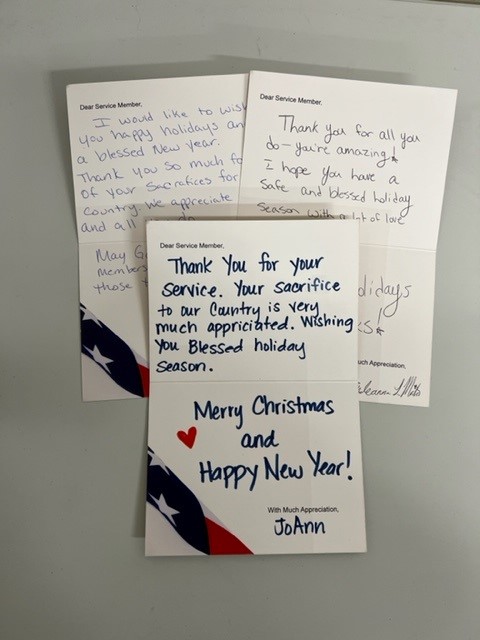 Dear Service Member,
I would like to wish
you happy holidays an
a blessed New year.
Thank you so much fo
of your Sacrafices for
Country. We appreciate
and all
May G
members
those
Dear Service Member,
Thank you for all you
do - you're amazing!
I hope you have a
safe and blessed holiday
season with a lot of love
lidays
s!
Much Appreciation,
Dear Service Member,
Thank You for your
service. Your sacrifice
to our Country is very
much appriciated. Wishing
you Blessed holiday
Season.
Merry Christmas
and
Happy New Year!
With Much Appreciation,
JoAnn